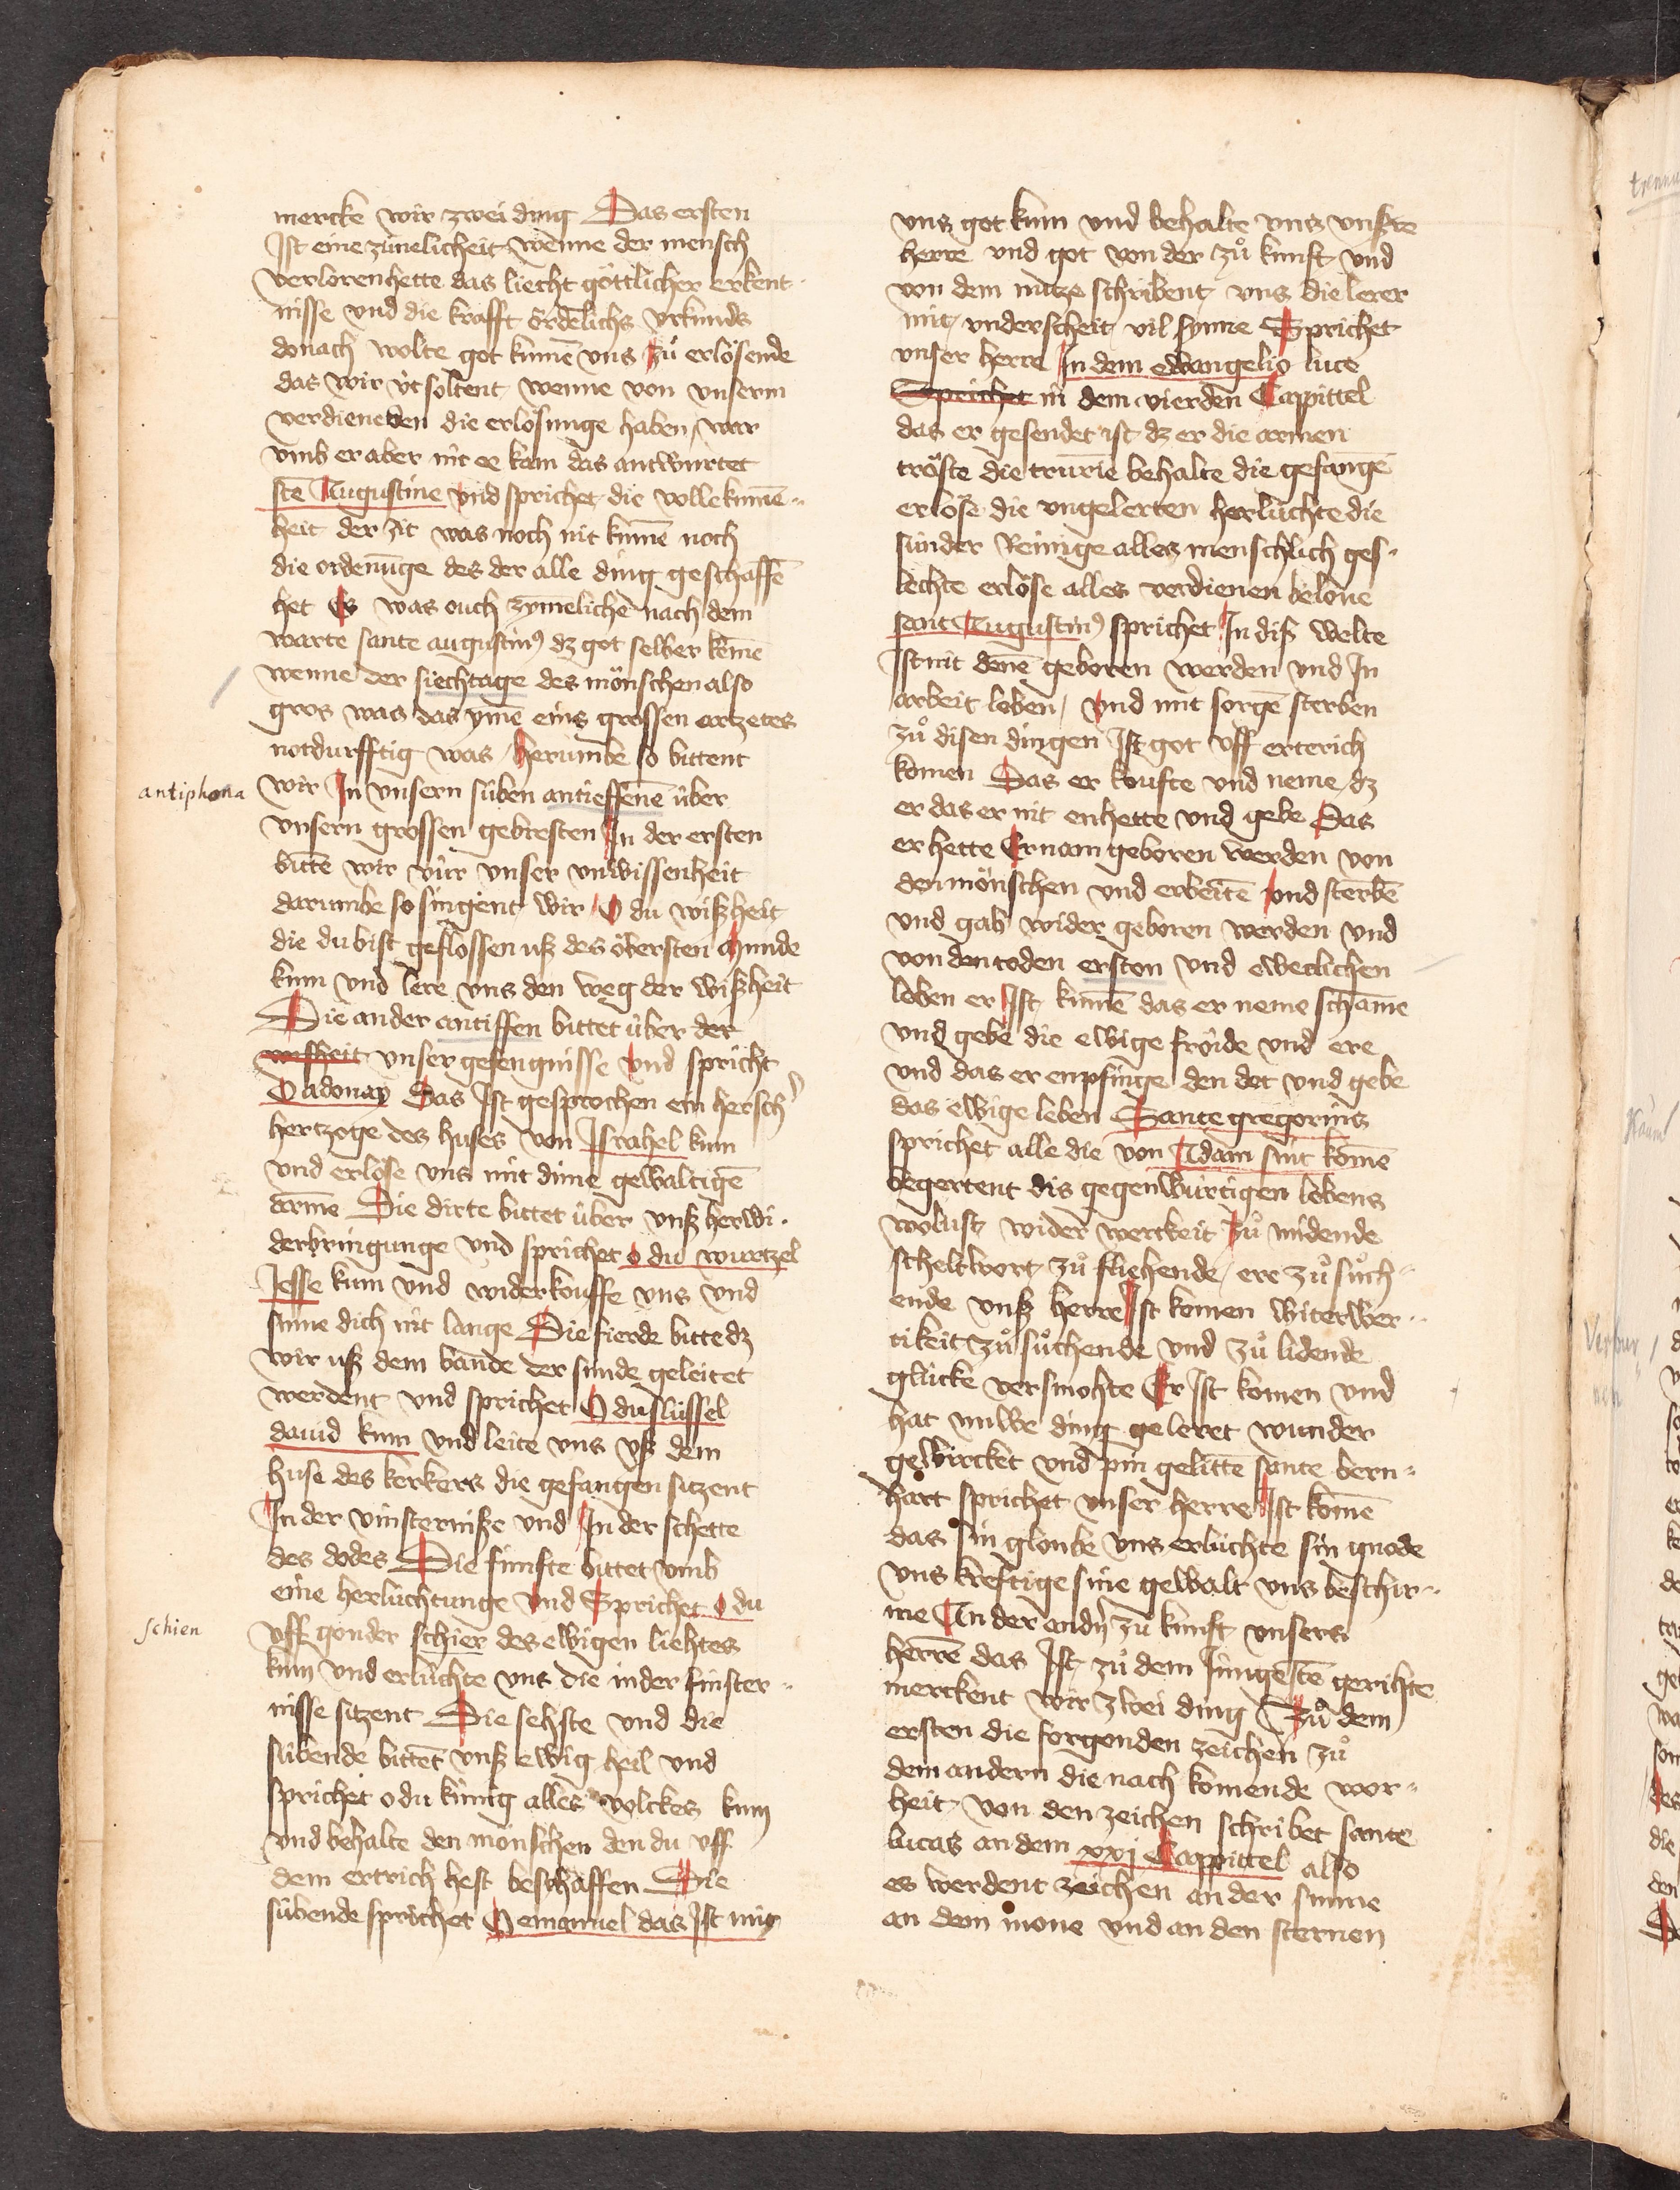 mercke wir zwei ding Das ersten
Ist eine zimelicheit wenne der mensch
verloren hette das liecht göttlicher erkent
nisse vnd die krafft ördelichs vrkunds
donach wolte got kumē vns zů erlösende
das wir üt soltent wenne von vnserm
verdieneden die erlösunge haben war
vmb er aber nit ee kam das antwurtet
stē Augustine vnd sprichet die vollekumē
heit der zit was noch nit kumē noch
die ordenūge des der alle ding geschaffē
het Es was ouch zymelichē nach dem
warte sante augustinꝰ dz got selber kōme
wenne der siechtage des mönschen also
gros was das yme eins grossen artzetes
notdurfftig was herumbe so bittent
antiphona
wir In vnsern süben antieffenē über
vnsern grossen gebresten In der ersten
bittē wir vür vnser vnwissenheit
darumbe so singent wir O du wißheit
die du bist geflossen uß des öbersten munde
kum vnd lere vns den weg der wißheit
Die ander antiffen bittet über der
wißheit vnser gefengnisse vnd spricht
O adonay Das Ist gesprochen ein hersch
hertzoge des huses von Israhel kum
vnd erlöse vns mit dime gewaltigē
arme Die dirte bittet über vnß herwi
derbringunge vnd sprichet o du wurtzel
Jesse kum vnd widerkouffe vns vnd
sume dich nit lange Die fierde bitte dz
wir uß dem bande der sunde geleitet
werdent vnd sprichet O du slüssel
dauid kum vnd leite vns uß dem
huse des kerkers die gefangen sitzent
In der vinsternisze vnd In der schette
des dodes Die fünfte bittet vmb
eine herlüchtunge vnd Sprichet o du
schien
uff gonder schier des ewigen liehtes
kum vnd erlüchte vns die in der finster
nisse sitzent Die sehste vnd die
sübende bittēt vnß ewig heil vnd
sprichet o du künig alles volckes kum
vnd behalte den mönschen den du uff
dem ertrich hest beschaffen Die
sübende sprichet O emanuel das Ist mig
vns got kum vnd behalte vns vnsere
herre vnd got von der zů kunft vnd
von dem nutze schribent vns die lerer
mit vnderscheit vil synne Sprichet
vnser herre In dem ewangelio luce
Sprichet in dem vierden Cappittel
das er gesendet ist dz er die armen
tröste die trurīe behalte die gefangē
erlöse die vngelerten herlüchte die
sünder Reinige alles menschlich ges
lechte erlöse alles verdienen belöne
sant Augustinꝰ sprichet In diß welte
Ist nit denē geboren werden vnd In
arbeit leben vnd mit sorgē sterben
zů disen dingen Ist got vff erterich
komen Das er koufte vnd neme dz
er das er nit enhette vnd gebe Das
er hette Er nam geboren werden von
den mönschen vnd erbeitē vnd sterbē
vnd gab wider geboren werden vnd
von den toden erston vnd eweclichen
leben er Ist kumē das er neme schame
vnd gebe die ewige fröide vnd ere
vnd das er enpfinge den det vnd gebe
das ewige leben Sante gregorius
sprichet alle die von Adam sint komē
begertent dis gegenwürtigen lebens
wolust wider werckeit zů midende
scheltwort zů fliehende ere zů sůch
ende vnß herre Ist komen witerwer
tikeit zů sůchende vnd zů lidende
glücke versmohte Er Ist komen vnd
hat nuwe ding geleret wunder
gewircket vnd pin gelittē sante bern
hart sprichet vnser herre Ist komē
das sin gloube vns erlüchte sin gnode
vns kreftige sine gewalt vns beschir
me An der andn zů kunft vnsers
herrē das Ist zů dem Jungestē gerichte
merckent wir zwei ding Zů dem
ersten die forgonden zeichen zů
dem andern die nach komende wor
heit von den zeichen schribet sante
lucas an dem xxj Cappittel also
es werdent zeichen an der sunne
an dem mone vnd an den sternen